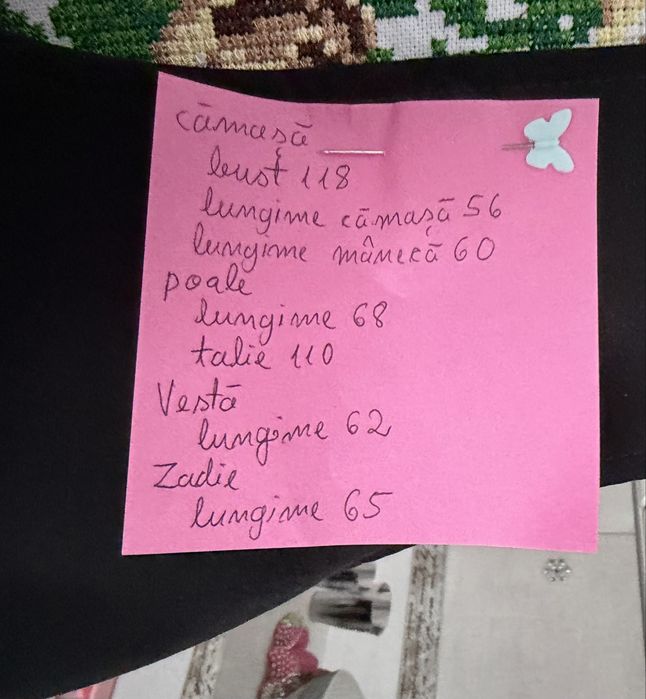 cămașă
bust 118
lungime cămașă 56
lungime mânecă 60
poale
lungime 68
talie 110
Vestă
lungime 62
Zadie
lungime 65